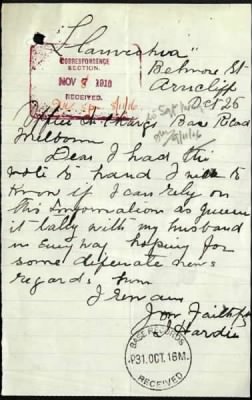 Belmore St
Arncliff
Oct 25
CORRESPONDENCE
SECTION.
NOV 1916
RECEIVED.
Officer in Charge Base Records
Melbourn
Dear I had the
note to hand I wish to
know if I can rely on
this Information as
it tally with my husband
in Eny way hoping for
some definate news
regards from
I remain
Your Faithful
J Hardie
BASE RECORDS
P31.OCT.16M.
RECEIVED